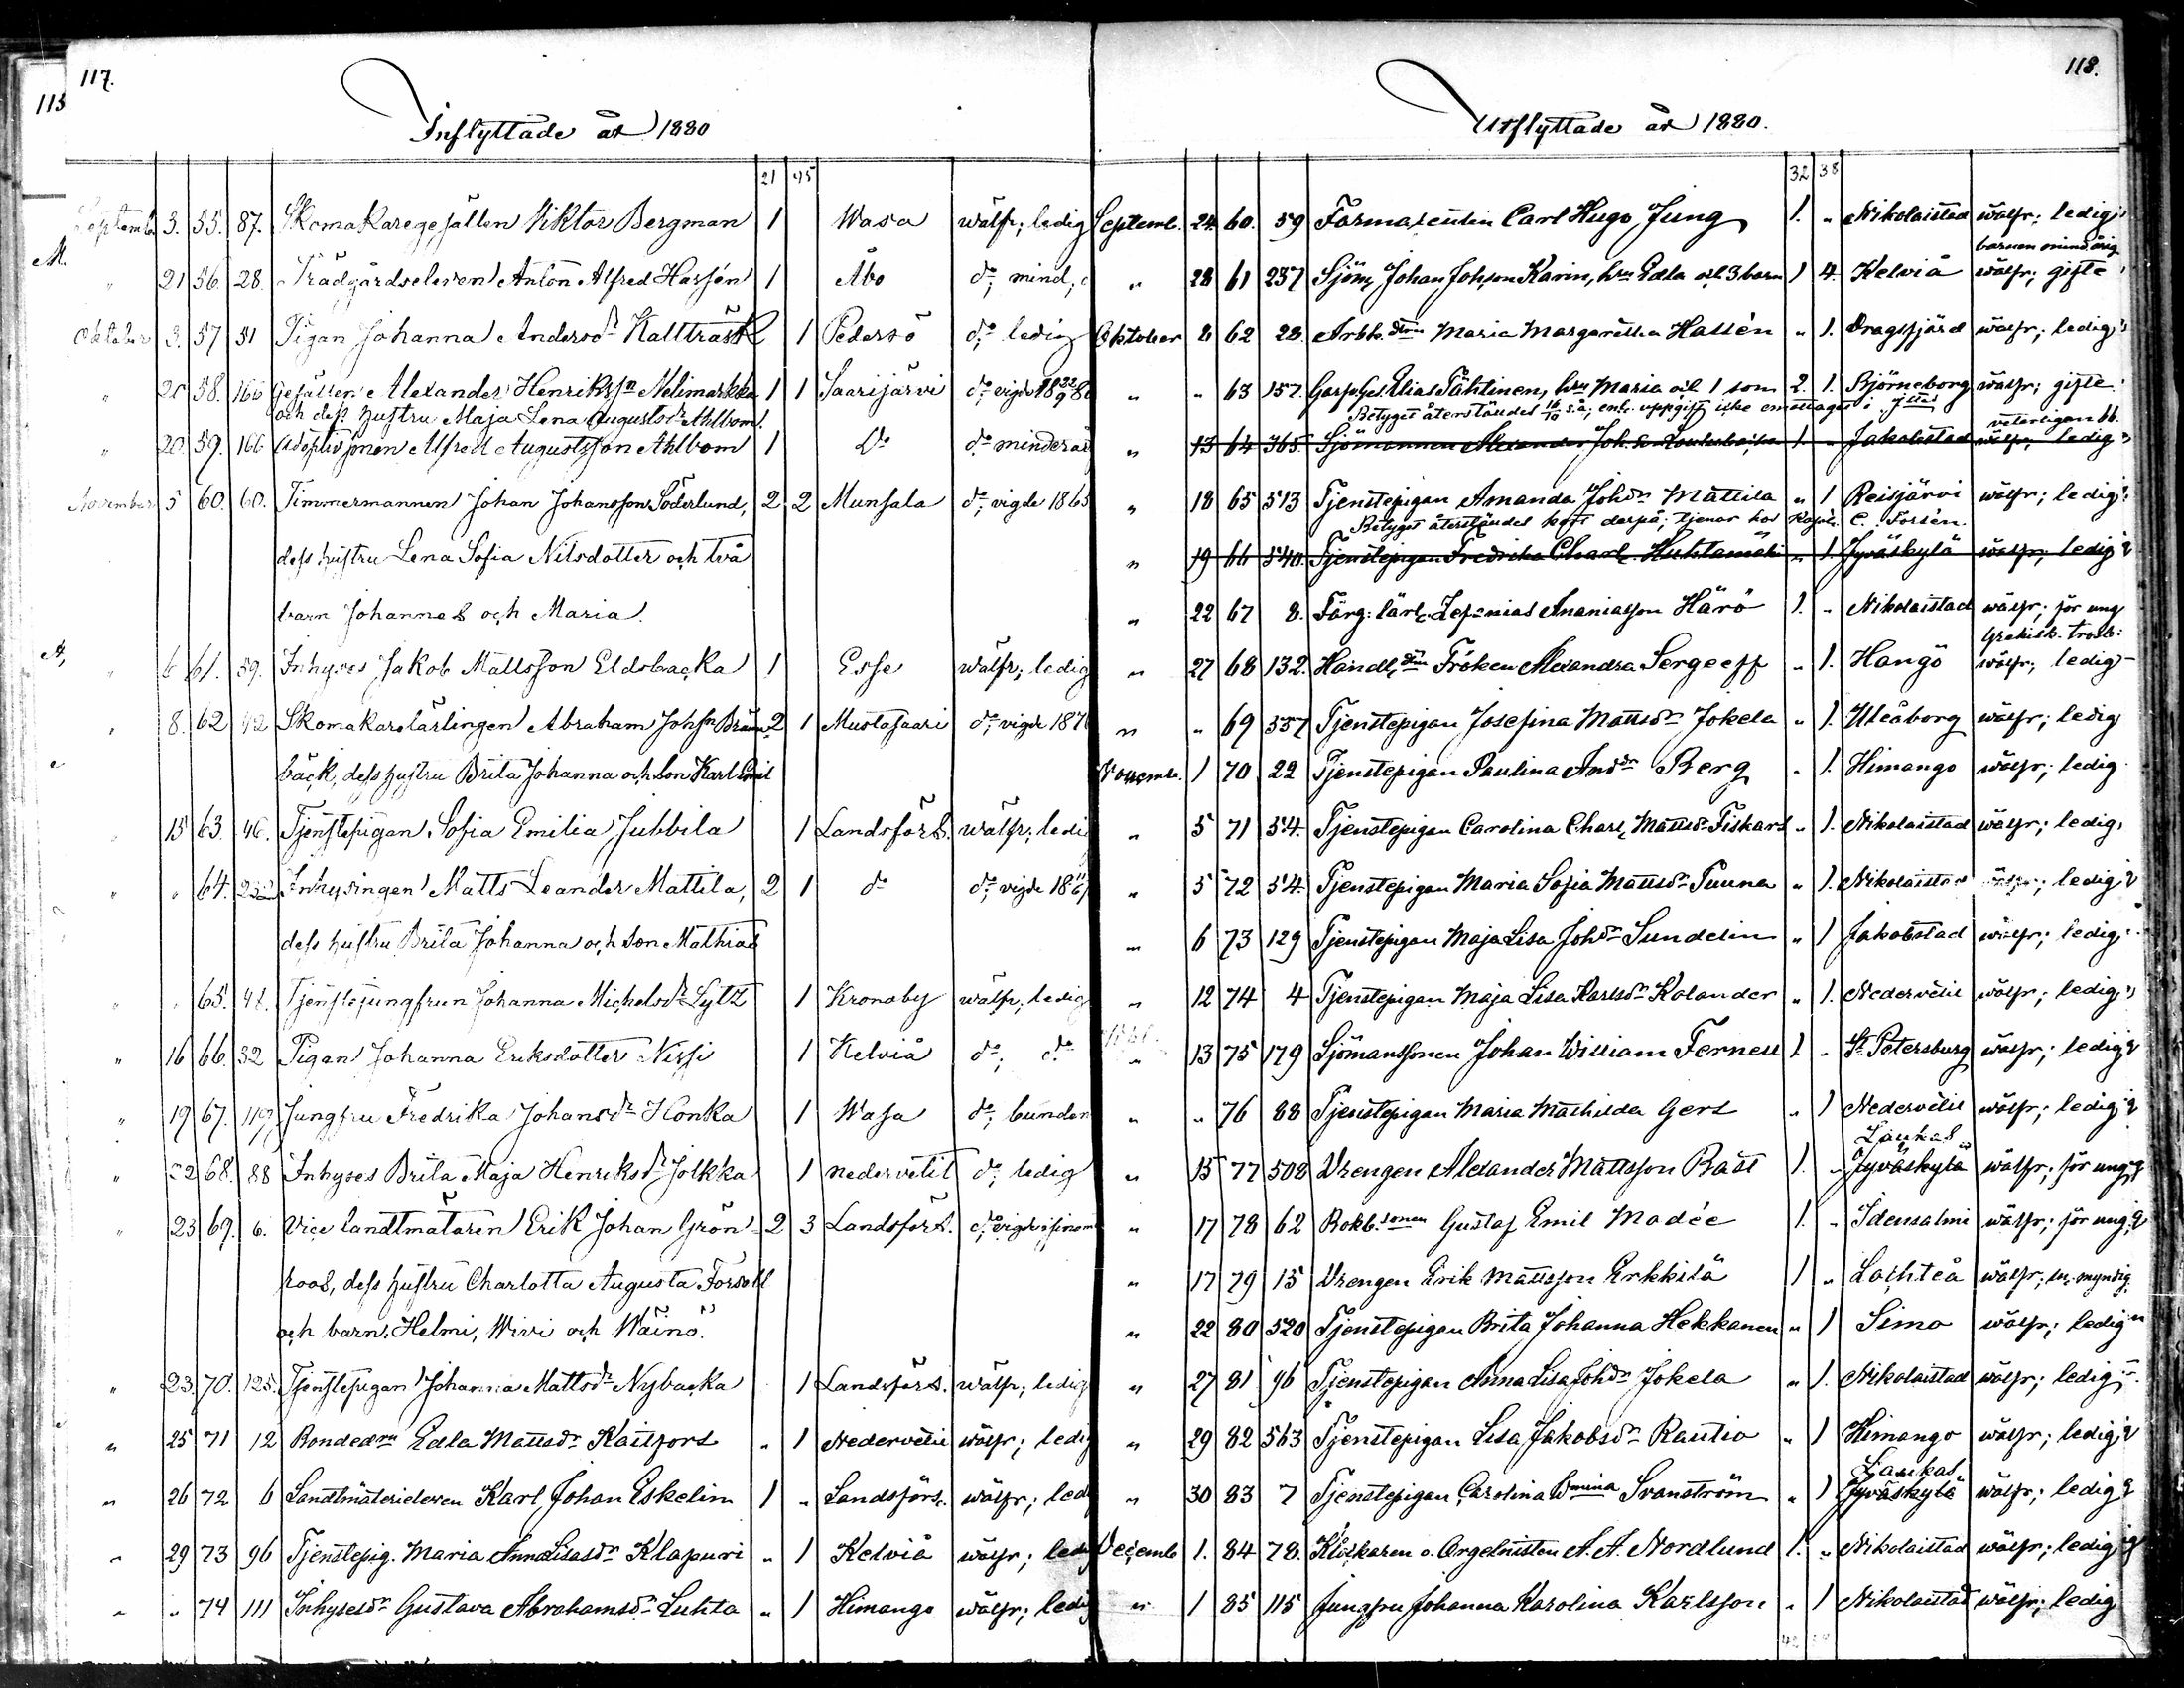 117.
113
Inflyttade år 1880
21 45
September 3. 55. 87. Skomakaregesällen Viktor Bergman 1 Wasa wälfr; ledig
M. " 21 56. 28. Trädgårdseleven Anton Alfred Hassén 1 Åbo do; mind;
Oktober 3. 57 51 Pigan Johanna Andersdr Kallträsk 1 Pedersö do; ledig
" 20 58. 166 Gesällen Alexander Henrikssn Nelimarkka 1 1 Saarijärvi do; vigde
och dess hustru Maja Lena Augustsdr Ahlbom.
" 20. 59. 166 Adoptivsonen Alfred Augustsson Ahlbom 1 Do do minderår
November 5 60. 60. Timmermannen Johan Johansson Söderlund, 2 2 Munsala do; vigde 1865
dess hustru Lena Sofia Nilsdotter och två
barn Johannes och Maria.
" 6 61. 59. Inhyses Jakob Mattsson Eldsbacka 1 Esse wälfr; ledig
" 8. 62 42 Skomakarelärlingen Abraham Johssn Bränn- 2 1 Mustasaari do; vigde 1876
bäck, dess hustru Brita Johanna och son Karl Emil
15 63. 46. Tjenstepigan Sofia Emilia Jubbila 1 Landsförs. wälfr; ledi
" " 64. 232 Inhysingen Matts Leander Mattila, 2 1 do do; vigde
dess hustru Brita Johanna och son Mathias
" " 65. 41. Tjenstejungfrun Johanna Michelsdr Lytz 1 Kronoby wälfr; ledig
" 16 66. 32 Pigan Johanna Eriksdotter Nissi 1 Kelviå do; do
" 19 67. 119 Jungfru Fredrika Johansdr Honka 1 Wasa do; bunden
" 22 68. 88 Inhyses Brita Maja Henriksdr Jolkka 1 Nedervetil do; ledig
" 23 69. 6. Vice landtmätaren Erik Johan Grön- 2 3 Landsförs.
roos, dess hustru Charlotta Augusta Forsell
och barn: Helmi, Wivi och Wäinö.
" 23. 70. 125. Tjenstepigan Johanna Mattsdr Nybacka 1 Landsförs. wälfr; ledig
" 25 71 12 Bondedrn Edla Mattsdr Kaitfors " 1 Nedervetil wälfr; ledig
" 26 72 6 Landtmäterieleven Karl Johan Eskelin 1 " Landsförs. wälfr; led
" 29 73 96 Tjenstepig. Maria AnnaLisasdr Klapuri " 1 Kelviå wälfr; led
" " 74 111 Inhysesdr Gustava Abrahamsdr Luhta " 1 Himango wälfr; ledig
118.
Utflyttade år 1880.
32 38
Septemb. 24. 60. 59 Farmaceutin Carl Hugo Jung 1. " Nikolaistad wälfr; ledig
barnen mindårig
" 28 61 237 Sjöm. Johan Johsson Karin, hru Edla och 3 barn 1 4. Kelviå wälfr; gifte
Oktober 6 62 28. Arbk.dtrn Maria Margaretha Hassén " 1. Dragsfjärd wälfr; ledig
" " 63 157. Garfv.ges. Elias Tähtinen, hru Maria och 1 son 2. 1. Björneborg wälfr; gifte
Betyget återständes 16/10 s.å; enl. uppgift icke emottaget i
veterligen bb.
" 13 64 365. Sjömannen Alexander Joh. 1. " Jakobstad wälfr; ledig
" 18 65 513 Tjenstepigan Amanda Johdr Mattila " 1 Reisjärvi wälfr; ledig
Betyget återständes kort derpå; tjenar hos C. Forsén.
" 19 66 540. Tjenstepigan Fredrika Charl. Huhtamäki " 1. Jyväskylä wälfr; ledig
" 22 67 8. Färg: lärl. Zefanias Ananiasson Härö 1. " Nikolaistad wälfr; för ung
Grekisk. trosb:
" 27 68 132. Handl.dtrn Fröken Alexandra Sergeeff " 1. Hangö wälfr; ledig
" " 69 537 Tjenstepigan Josefina Mattsdr Jokela " 1. Uleåborg wälfr; ledig
Novemb. 1 70 22 Tjenstepigan Paulina Anddr Berg " 1. Himango wälfr; ledig
" 5 71 54. Tjenstepigan Carolina Charl. Mattsdr Fiskars " 1. Nikolaistad wälfr; ledig
" 5 72 54. Tjenstepigan Maria Sofia Mattsdr Puuna " 1. Nikolaistad wälfr; ledig
" 6 73 129 Tjenstepigan Maja Lisa Johdr Sundelin " 1 Jakobstad wälfr; ledig
" 12 74 4 Tjenstepigan Maja Lisa Karlsdr Kolander " 1. Nedervetil wälfr; ledig
" 13 75 179 Sjömanssonen Johan William Fernell 1. " St Petersburg wälfr; ledig
" " 76 88 Tjenstepigan Maria Mathilda Gers " 1 Nedervetil wälfr; ledig
Laukas
" 15 77 508 Drengen Alexander Mattsson Bast 1. " Jyväskylä wälfr; för ung
" 17 78 62 Bokb.sonen Gustaf Emil Madée 1. " Idensalmi wälfr; för ung
" 17 79 15 Drengen Erik Mattsson Erkkilä 1 " Lochteå wälfr; myndig
" 22 80 520 Tjenstepigan Brita Johanna Hekkanen " 1 Simo wälfr; ledig
" 27 81 96 Tjenstepigan Anna Lisa Johdr Jokela " 1. Nikolaistad wälfr; ledig
" 29 82 563 Tjenstepigan Lisa Jakobsdr Rautio " 1 Himango wälfr; ledig
Laukas
" 30 83 7 Tjenstepigan Carolina Wmina Svanström " 1 Jyväskylä wälfr; ledig
Decemb 1. 84 78. Klockaren o. Orgelnisten A. A. Nordlund 1. " Nikolaistad wälfr; ledig
" 1 85 115 Jungfru Johanna Karolina Karlsson " 1 Nikolaistad wälfr; ledig